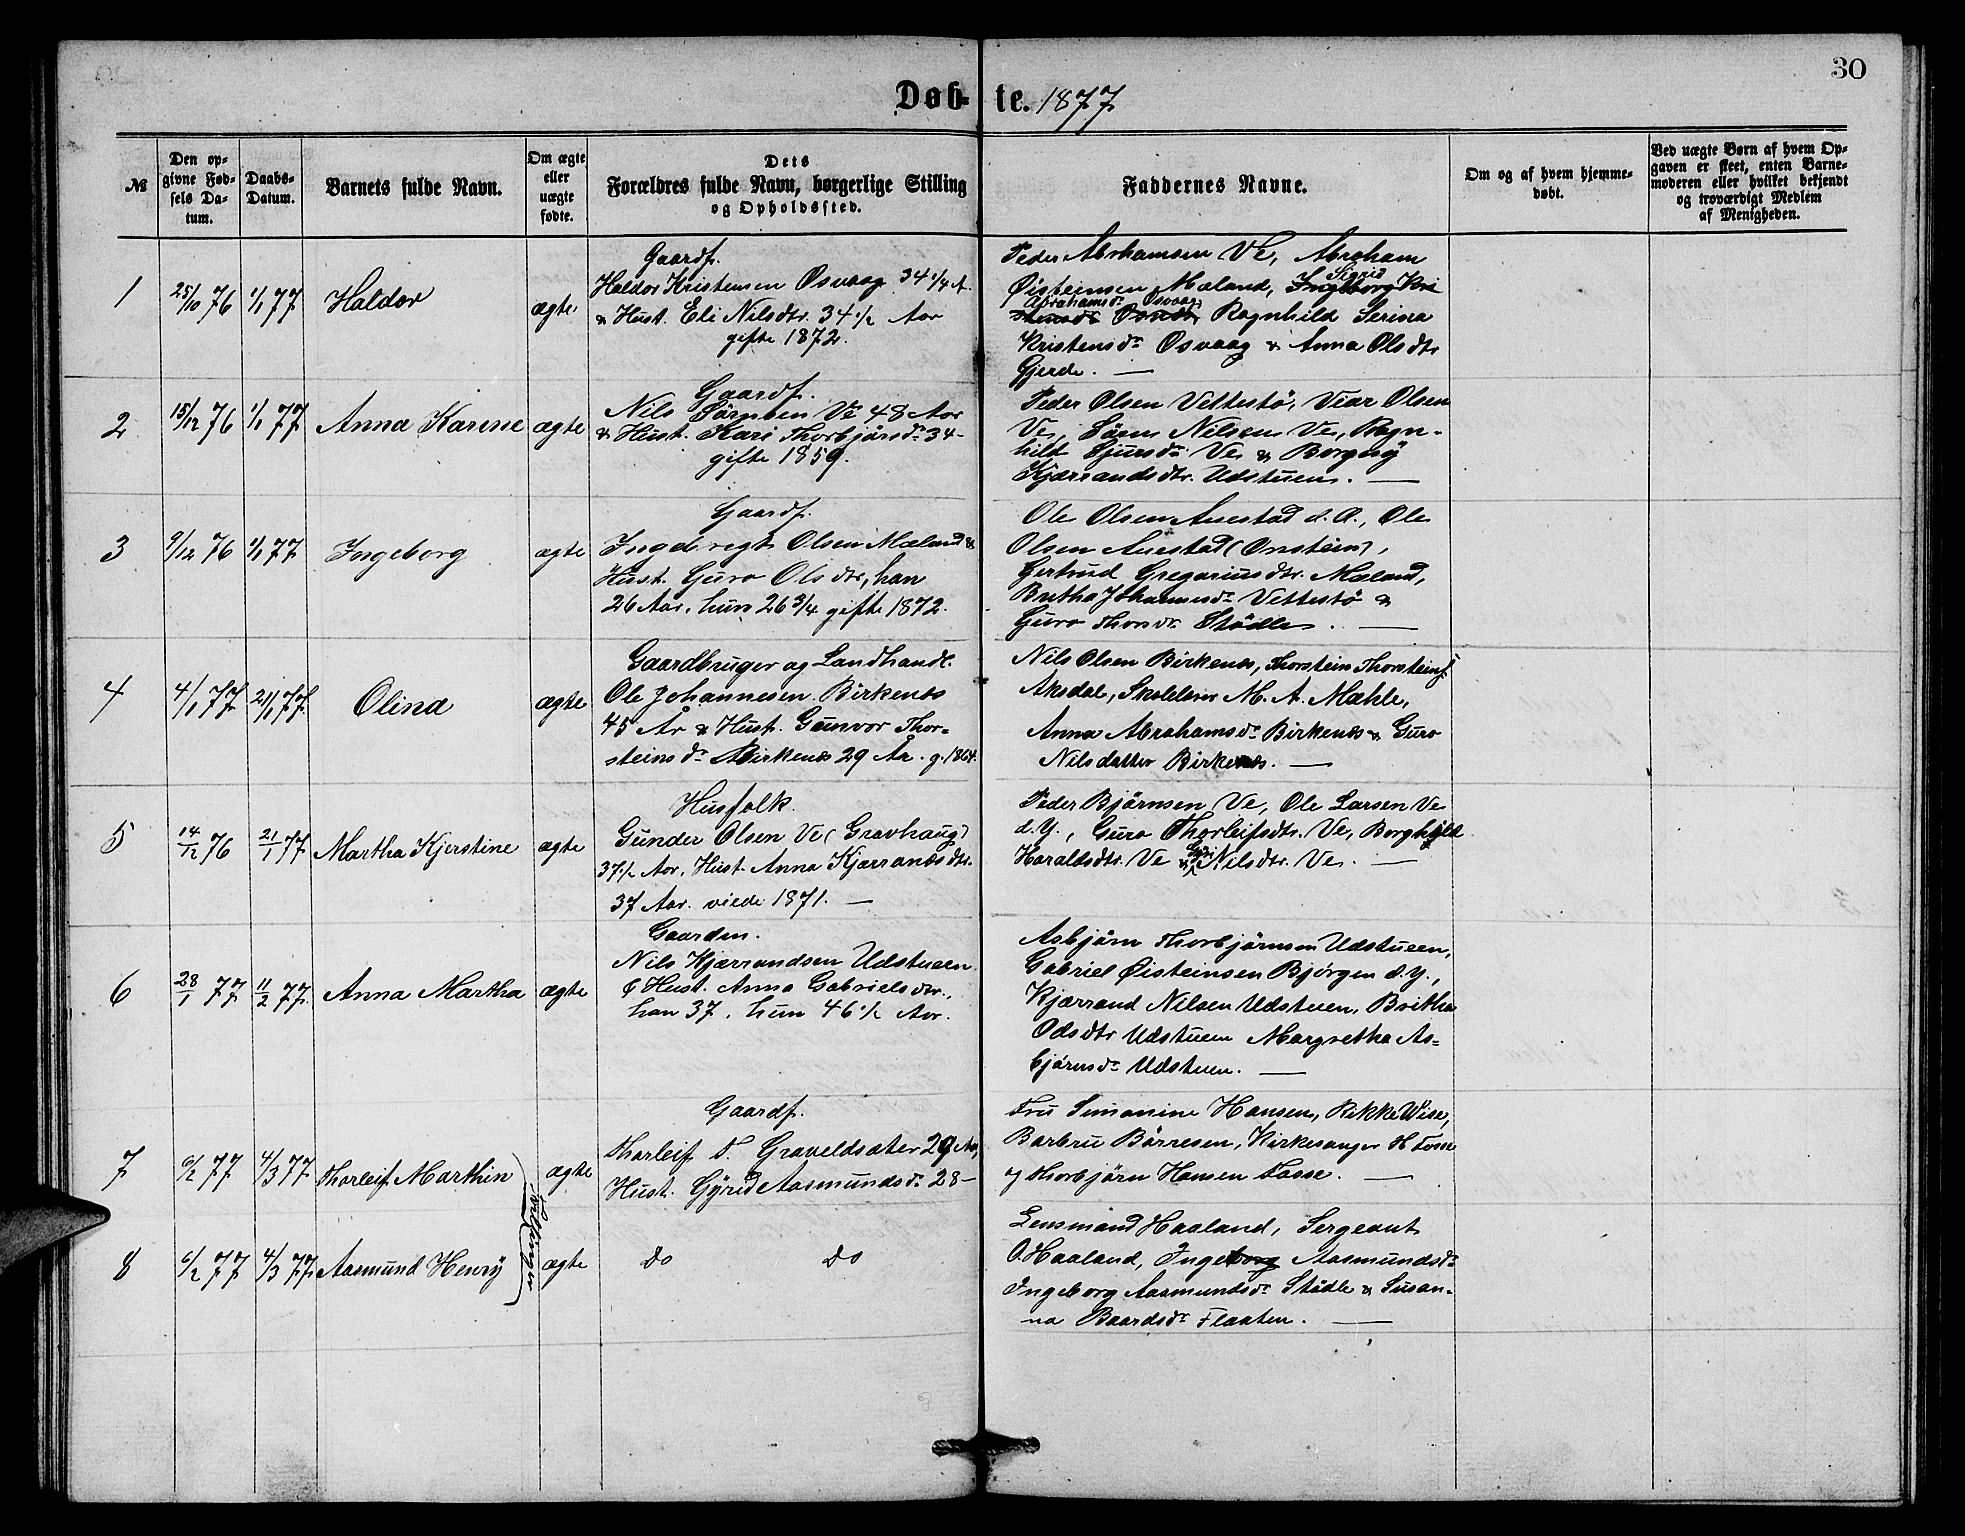 30
Døb- te. 1877
№
Den op-
givne Fød-
sels Da-
tum.
Daabs-
Datum.
Barnets fulde Navn.
Om ægte
eller
uægte
fødte.
Dets
Forældres fulde Navn, borgerlige Stilling
og Opholdssted.
Faddernes Navne.
Om og af hvem hjemme-
døbt.
Ved uægte Børn af hvem Op-
gaven er skeet, enten Barne-
moderen eller hvilket bekjendt
og troværdigt Medlem
af Menigheden.
1 25/10 76 1/1 77 Haldor ægte
Gaardf.
Haldor Kristensen Osvaag 34 1/4 A.
& Hust. Eli Nilsdtr. 34 1/2 Aar
gifte 1872.
Peder Abrahamsen Ve, Abraham
Øisteinsen Mæland, Ingeborg Kri
Sigrid
Abrahamsdr. Osvaag
stensdr. Ragnhild Serina
Kristensdr. Osvaag & Anna Olsdtr
Gjerde. —
2 15/12 76 1/1 77 Anna Karine ægte
Gaardf.
Nils Sørensen Ve 48 Aar
& Hust. Kari Thorbjörsdr. 34 -
gifte 1859.
Peder Olsen Vettestö, Viar Olsen
Ve, Sören Nilsen Ve, Ragn-
hild Sjursdr. Ve & Borgny
Kjærrandsdtr. Udstuen. —
3 9/12 76 1/1 77 Ingeborg ægte
Gaardf.
Ingebregt Olsen Mæland &
Hust. Guro Olsdtr, han
26 Aar, hun 26 3/4 gifte 1872.
Ole Olsen Auestad d. Æ., Ole
Olsen Auestad (Onstein),
Gertrud Gregoriusdtr. Mæland,
Britha Johannesdr. Vettestö &
Guro Thorsdr. Stödle. —
4 4/1 77 21/1 77. Olina ægte
Gaardbruger og Landhandl.
Ole Johannesen Birkenes
45 År & Hust. Gunvor Thor-
steinsdr. Birkenes 29 År. g. 1864.
Nils Olsen Birkenes, Thorstein Thorsteins.
Aksdal, Skolelærer M. A. Mæhle,
Anna Abrahamsdr. Birkenes & Guro
Nilsdatter Birkenes. —
5 14/12 76 21/1 77 Martha Kjerstine ægte
Husfolk.
Gunder Olsen Ve (Gravhaug)
37 1/2 Aar, Hust. Anna Kjærrandsdtr.
37 Aar. viede 1871. —
Peder Bjørnsen Ve, Ole Larsen Ve
d. Y., Guro Thorleifsdtr. Ve, Borghild
Haraldsdtr. Ve & Nilsdtr. Ve. —
6 28/1 77 11/2 77. Anna Martha ægte
Gaardm.
Nils Kjærrandsen Udstueen
& Hust. Anna Gabrielsdtr.,
han 37, hun 46 1/2 Aar.
Asbjörn Thorbjörnsen Udstueen,
Gabriel Øisteinsen Bjørgen d. Y.,
Kjærrand Nilsen Udstuen, Britha
Odsdtr Udstueen Margretha As-
björnsdr. Udstuen. —
7 6/2 77 4/3 77 Thorleif Marthin ægte
Tvillinger
Gaardf.
Thorleif T. Graveldsæter 29 Aar,
Hust. Gyrid Aasmundsdr. 28 -
Fru Simonine Hansen, Rikke Wise,
Barbru Børresen, Kirkesanger H Tosse
og Thorbjörn Hansen Tosse. —
8 6/2 77 4/3 77. Aasmund Henry ægte
do do
Lensmand Haaland, Sergeant
O. Haaland, Ingeborg Aasmundsdr.
Ingeborg Aasmundsdr. Stödle & Susan-
na Baardsdr. Flaaten. —